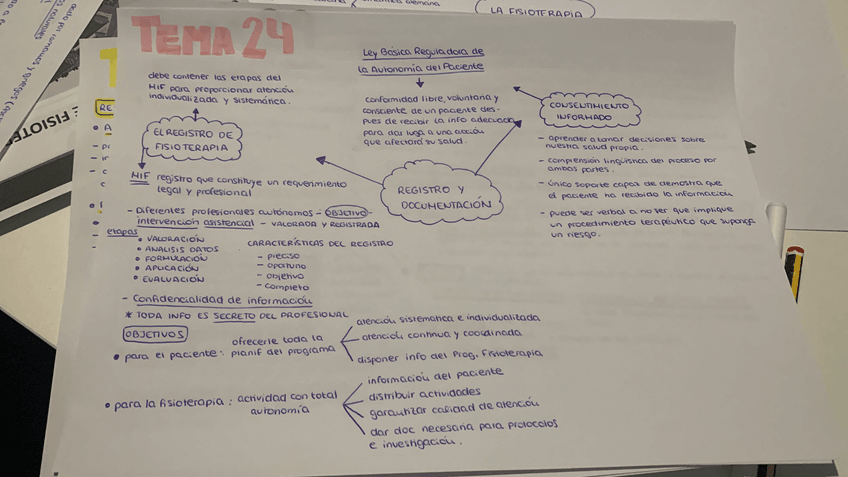 LA FISIOTERAPIA
TEMA 24
debe contener las etapas del
MIF para proporcionar atención
individualizada y sistemática.
EL REGISTRO DE
FISIOTERAPIA
MIF registro que constituye un requerimiento
legal y profesional
Ley Básica Reguladora de
la Autonomía del Paciente
conformidad libre, voluntaria y
consciente de un paciente des-
pues de recibir la info adecuada
para dar luga a una acción
que afectará su salud.
CONSENTIMIENTO
INFORMADO
- aprender a tomar decisiones sobre
nuestra salud propia.
- comprensión lingüistica del proceso por
ambas partes.
- único soporte capaz de demostrar que
el paciente ha recibido la información
- puede ser verbal a no ser que implique
un procedimiento terapéutico que suponga
un riesgo.
REGISTRO Y
DOCUMENTACIÓN
- Diferentes profesionales autónomos - OBJETIVO -
intervención asistencial - VALORADA Y REGISTRADA
- etapas
• VALORACIÓN
• ANALISIS DATOS
• FORMULACIÓN
• APLICACIÓN
• EVALUACIÓN
CARACTERÍSTICAS DEL REGISTRO
- preciso
- oportuno
- objetivo
- completo
- Confidencialidad de información
* TODA INFO ES SECRETO DEL PROFESIONAL
OBJETIVOS
• para el paciente: ofrecerle toda la
planif del programa
atención sistemática e individualizada
atención continua y coordinada
disponer info del Prog. Fisioterapia
• para la fisioterapia: actividad con total
autonomía
información del paciente
distribuir actividades
garantizar calidad de atención
dar doc necesaria para protocolos
e investigación.